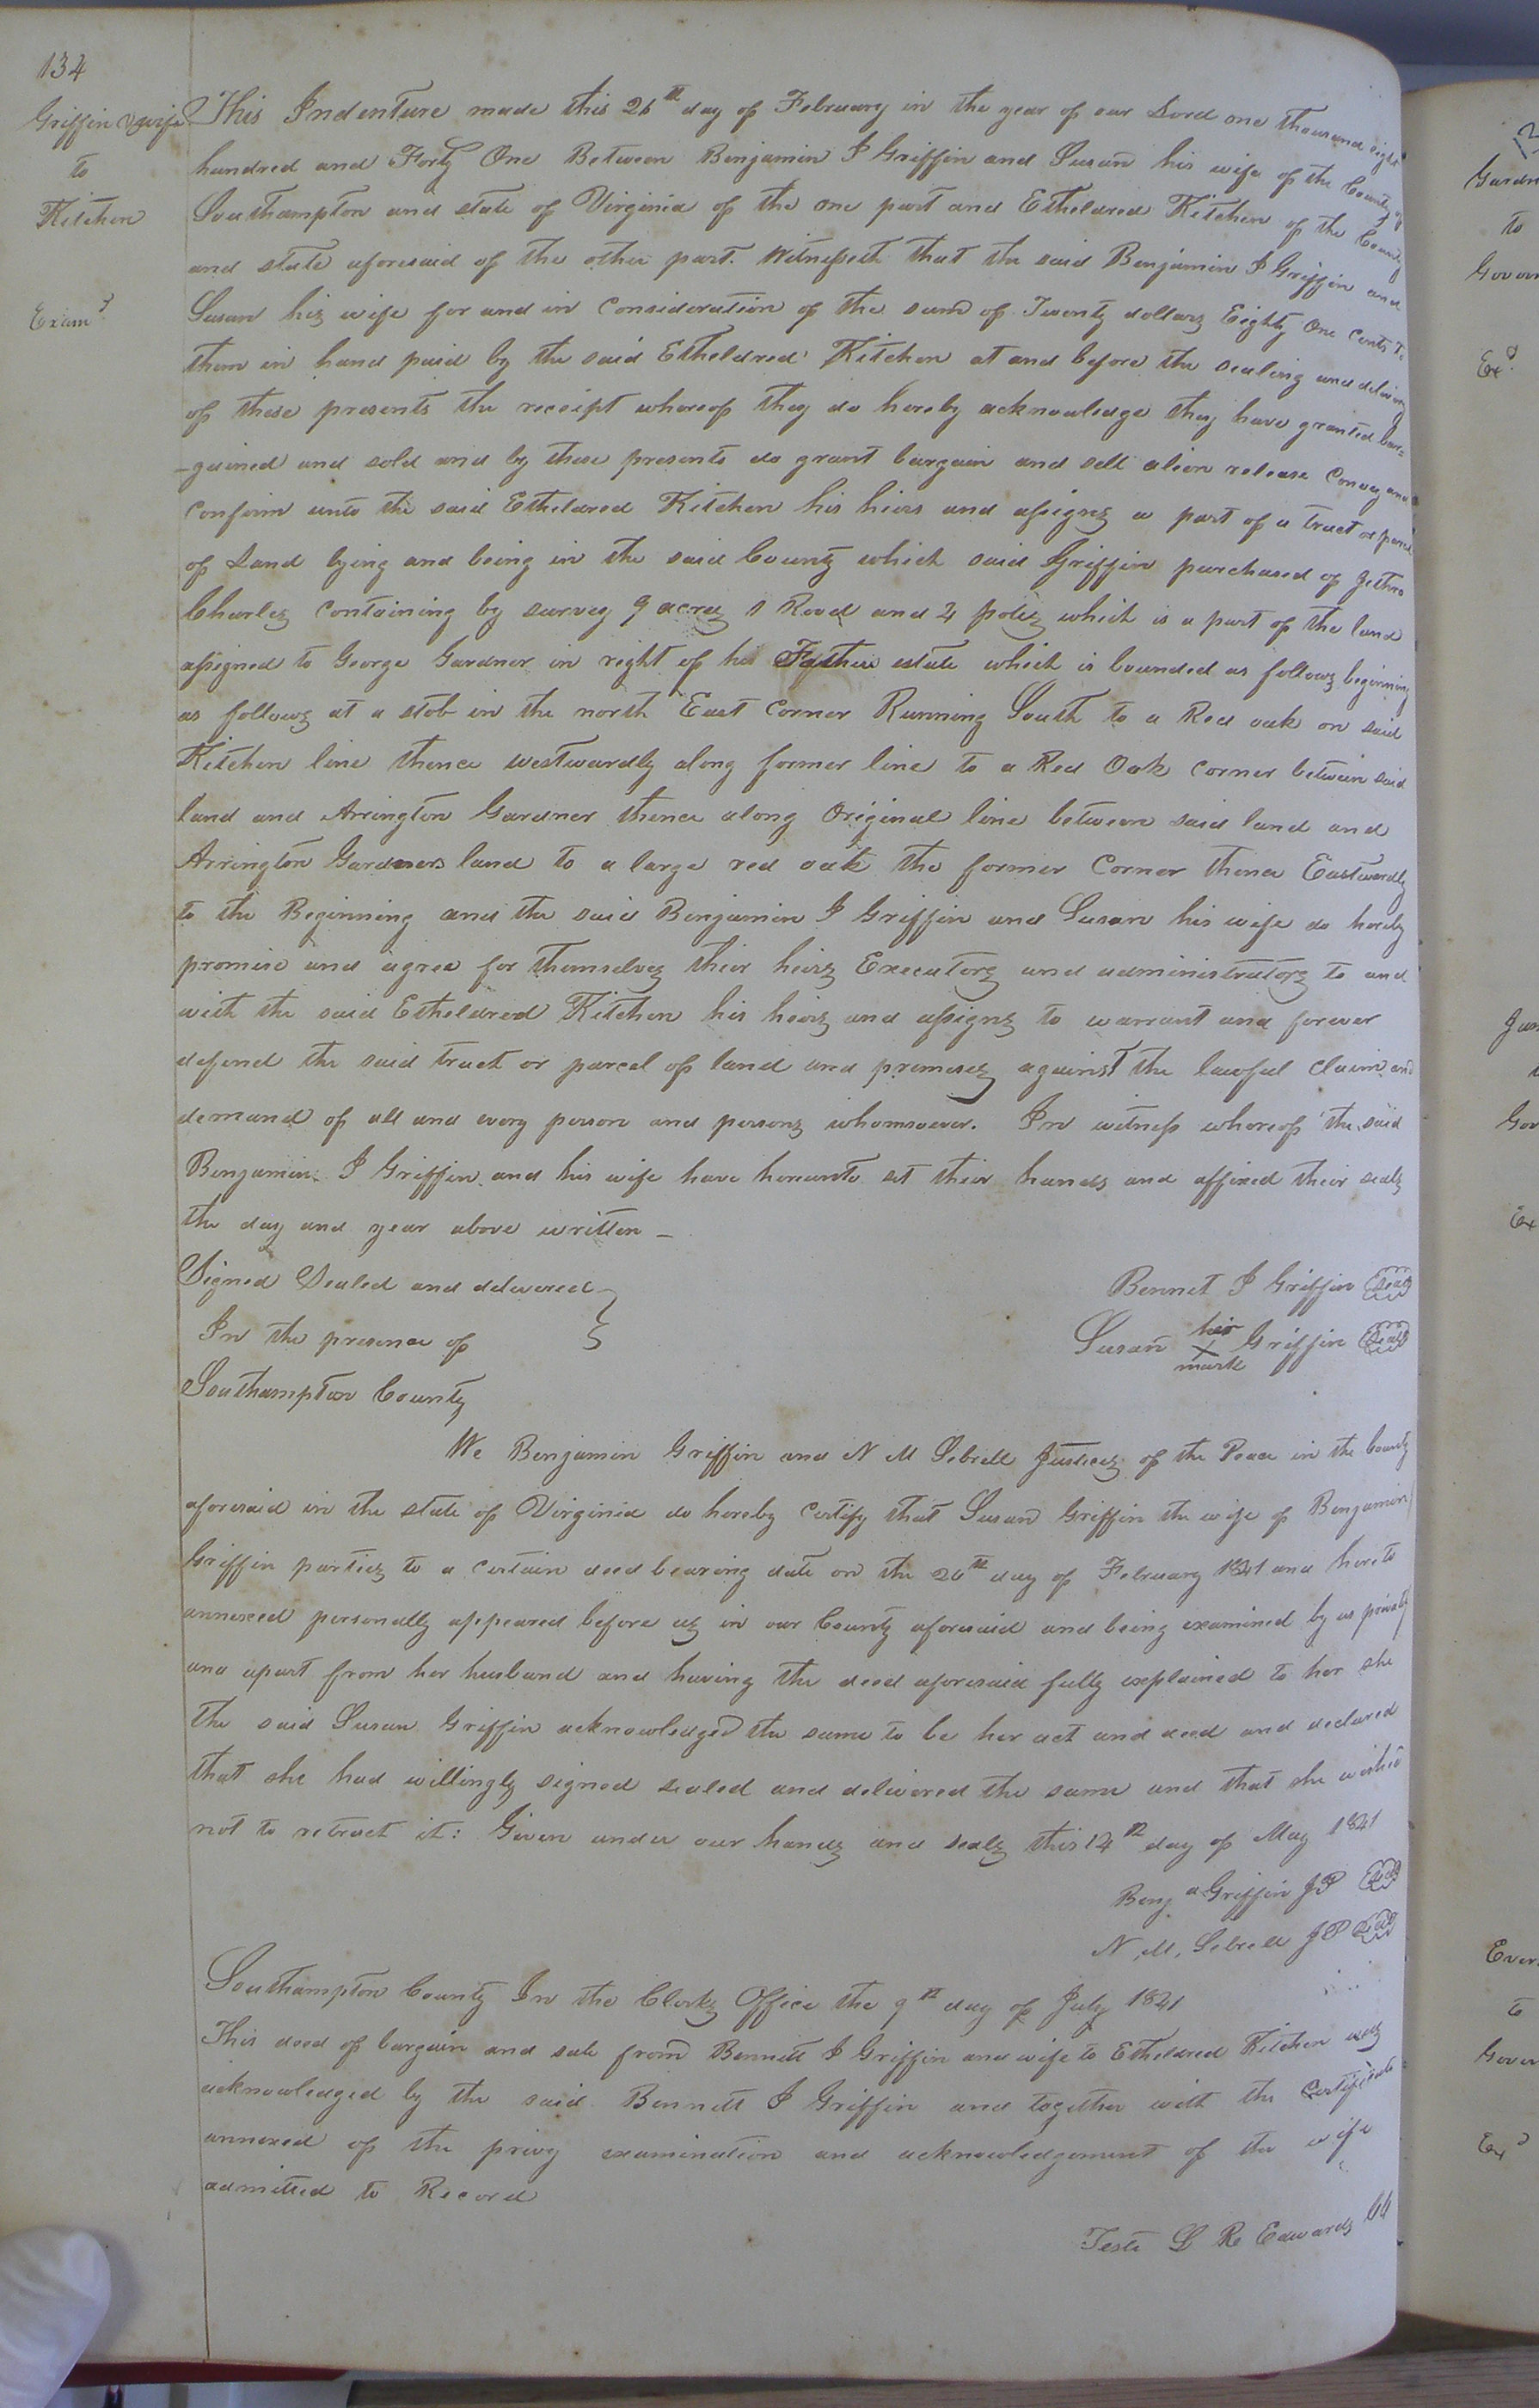 134
Griffin & wife
to
Kitchen
Exam.d
This Indenture made this 26th day of February in the year of our Lord one thousand eight
hundred and Forty One Between Benjamin J Griffin and Susan his wife of the County of
Southampton and state of Virginia of the one part and Etheldred Kitchen of the County
and state aforesaid of the other part. Witnesseth that the said Benjamin J Griffin and
Susan his wife for and in consideration of the sum of Twenty dollars Eighty One Cents to
them in hand paid by the said Etheldred Kitchen at and before the sealing and delivery
of these presents the receipt whereof they do hereby acknowledge they have granted bar=
-gained and sold and by these presents do grant bargain and sell alien release Convey and
confirm unto the said Etheldred Kitchen his heirs and assigns a part of a tract or parcel
of Land lying and being in the said County which said Griffin purchased of Jethro
Charles Containing by survey 9 acres 1 Rood and 24 poles which is a part of the land
assigned to George Gardner in right of his Fathers estate which is bounded as follows beginning
as follows at a stob in the north East Corner Running South to a Red oak on said
Kitchen line thence westwardly along former line to a Red Oak corner between said
land and Arrington Gardner thence along Original line between said land and
Arrington Gardners land to a large red oak the former Corner thence Eastwardly
to the Beginning and the said Benjamin J Griffin and Susan his wife do hereby
promise and agree for themselves their heirs Executors and administrators to and
with the said Etheldred Kitchen his heirs and assigns to warrant and forever
defend the said tract or parcel of land and premises against the lawful claim and
demand of all and every person and persons whomsoever. In witness whereof the said
Benjamin J Griffin and his wife have hereunto set their hands and affixed their seals
the day and year above written -
Signed Sealed and delivered } Bennet J Griffin Seal
In the presence of Susan her X mark Griffin Seal
Southampton County
We Benjamin Griffin and N M Sebrell Justices of the Peace in the County
aforesaid in the state of Virginia do hereby certify that Susan Griffin the wife of Benjamin
Griffin parties to a certain deed bearing date on the 26th day of February 1841 and hereto
annexed personally appeared before us in our County aforesaid and being examined by us privately
and apart from her husband and having the deed aforesaid fully explained to her she
the said Susan Griffin acknowledged the same to be her act and deed and declared
that she had willingly signed sealed and delivered the same and that she wished
not to retract it: Given under our hands and seals this 14th day of May 1841
Benj.a Griffin JP Seal
N, M, Sebrell JP Seal
Southampton County In the Clerks Office the 9th day of July 1841
This deed of bargain and sale from Bennett J Griffin and wife to Etheldred Kitchen was
acknowledged by the said Bennett J Griffin and together with the certificate
annexed of the privy examination and acknowledgement of the wife
admitted to Record
Teste L R Edwards CC
to
Ex.d
to
Exd